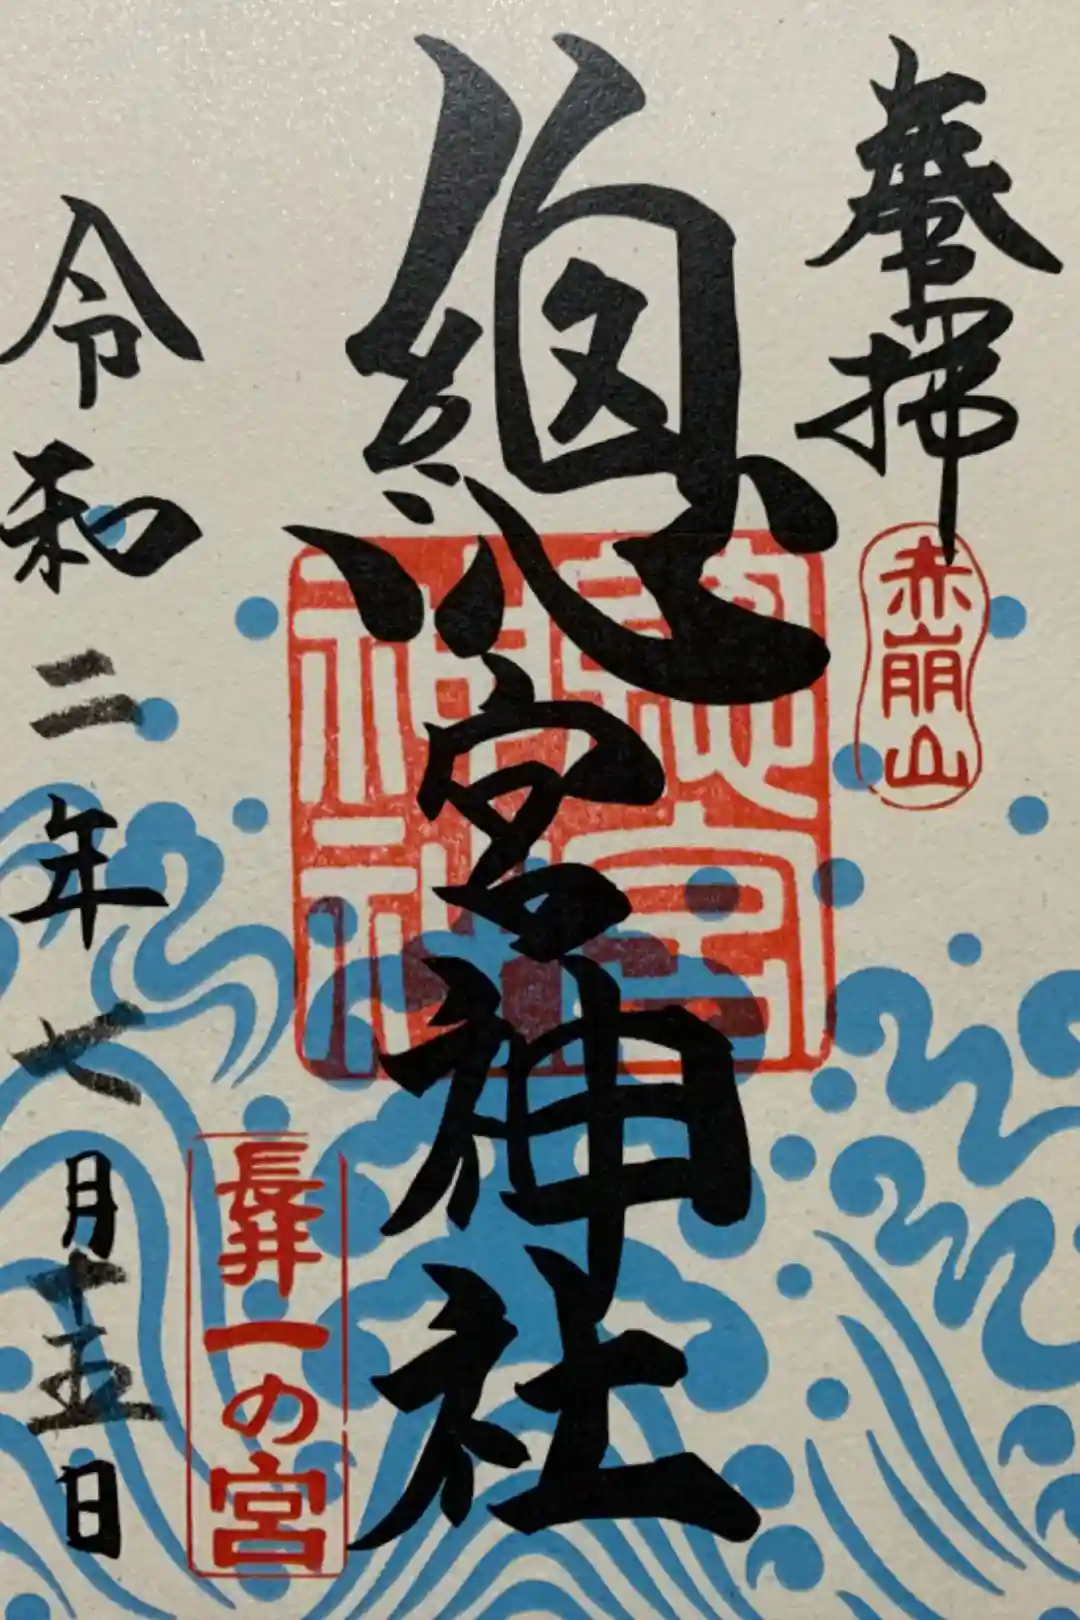 奉拝
赤崩山
總宮神社
總宮
神社
長井一の宮
令和二年七月十五日